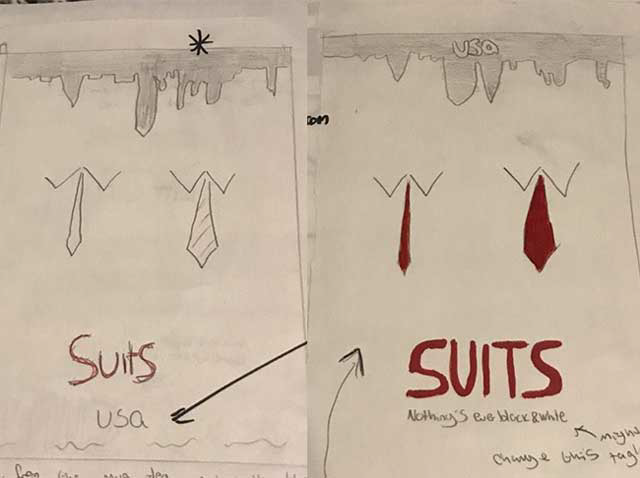 *
Suits
usa
usa
com
SUITS
Nothing's ever black & white
change this tag